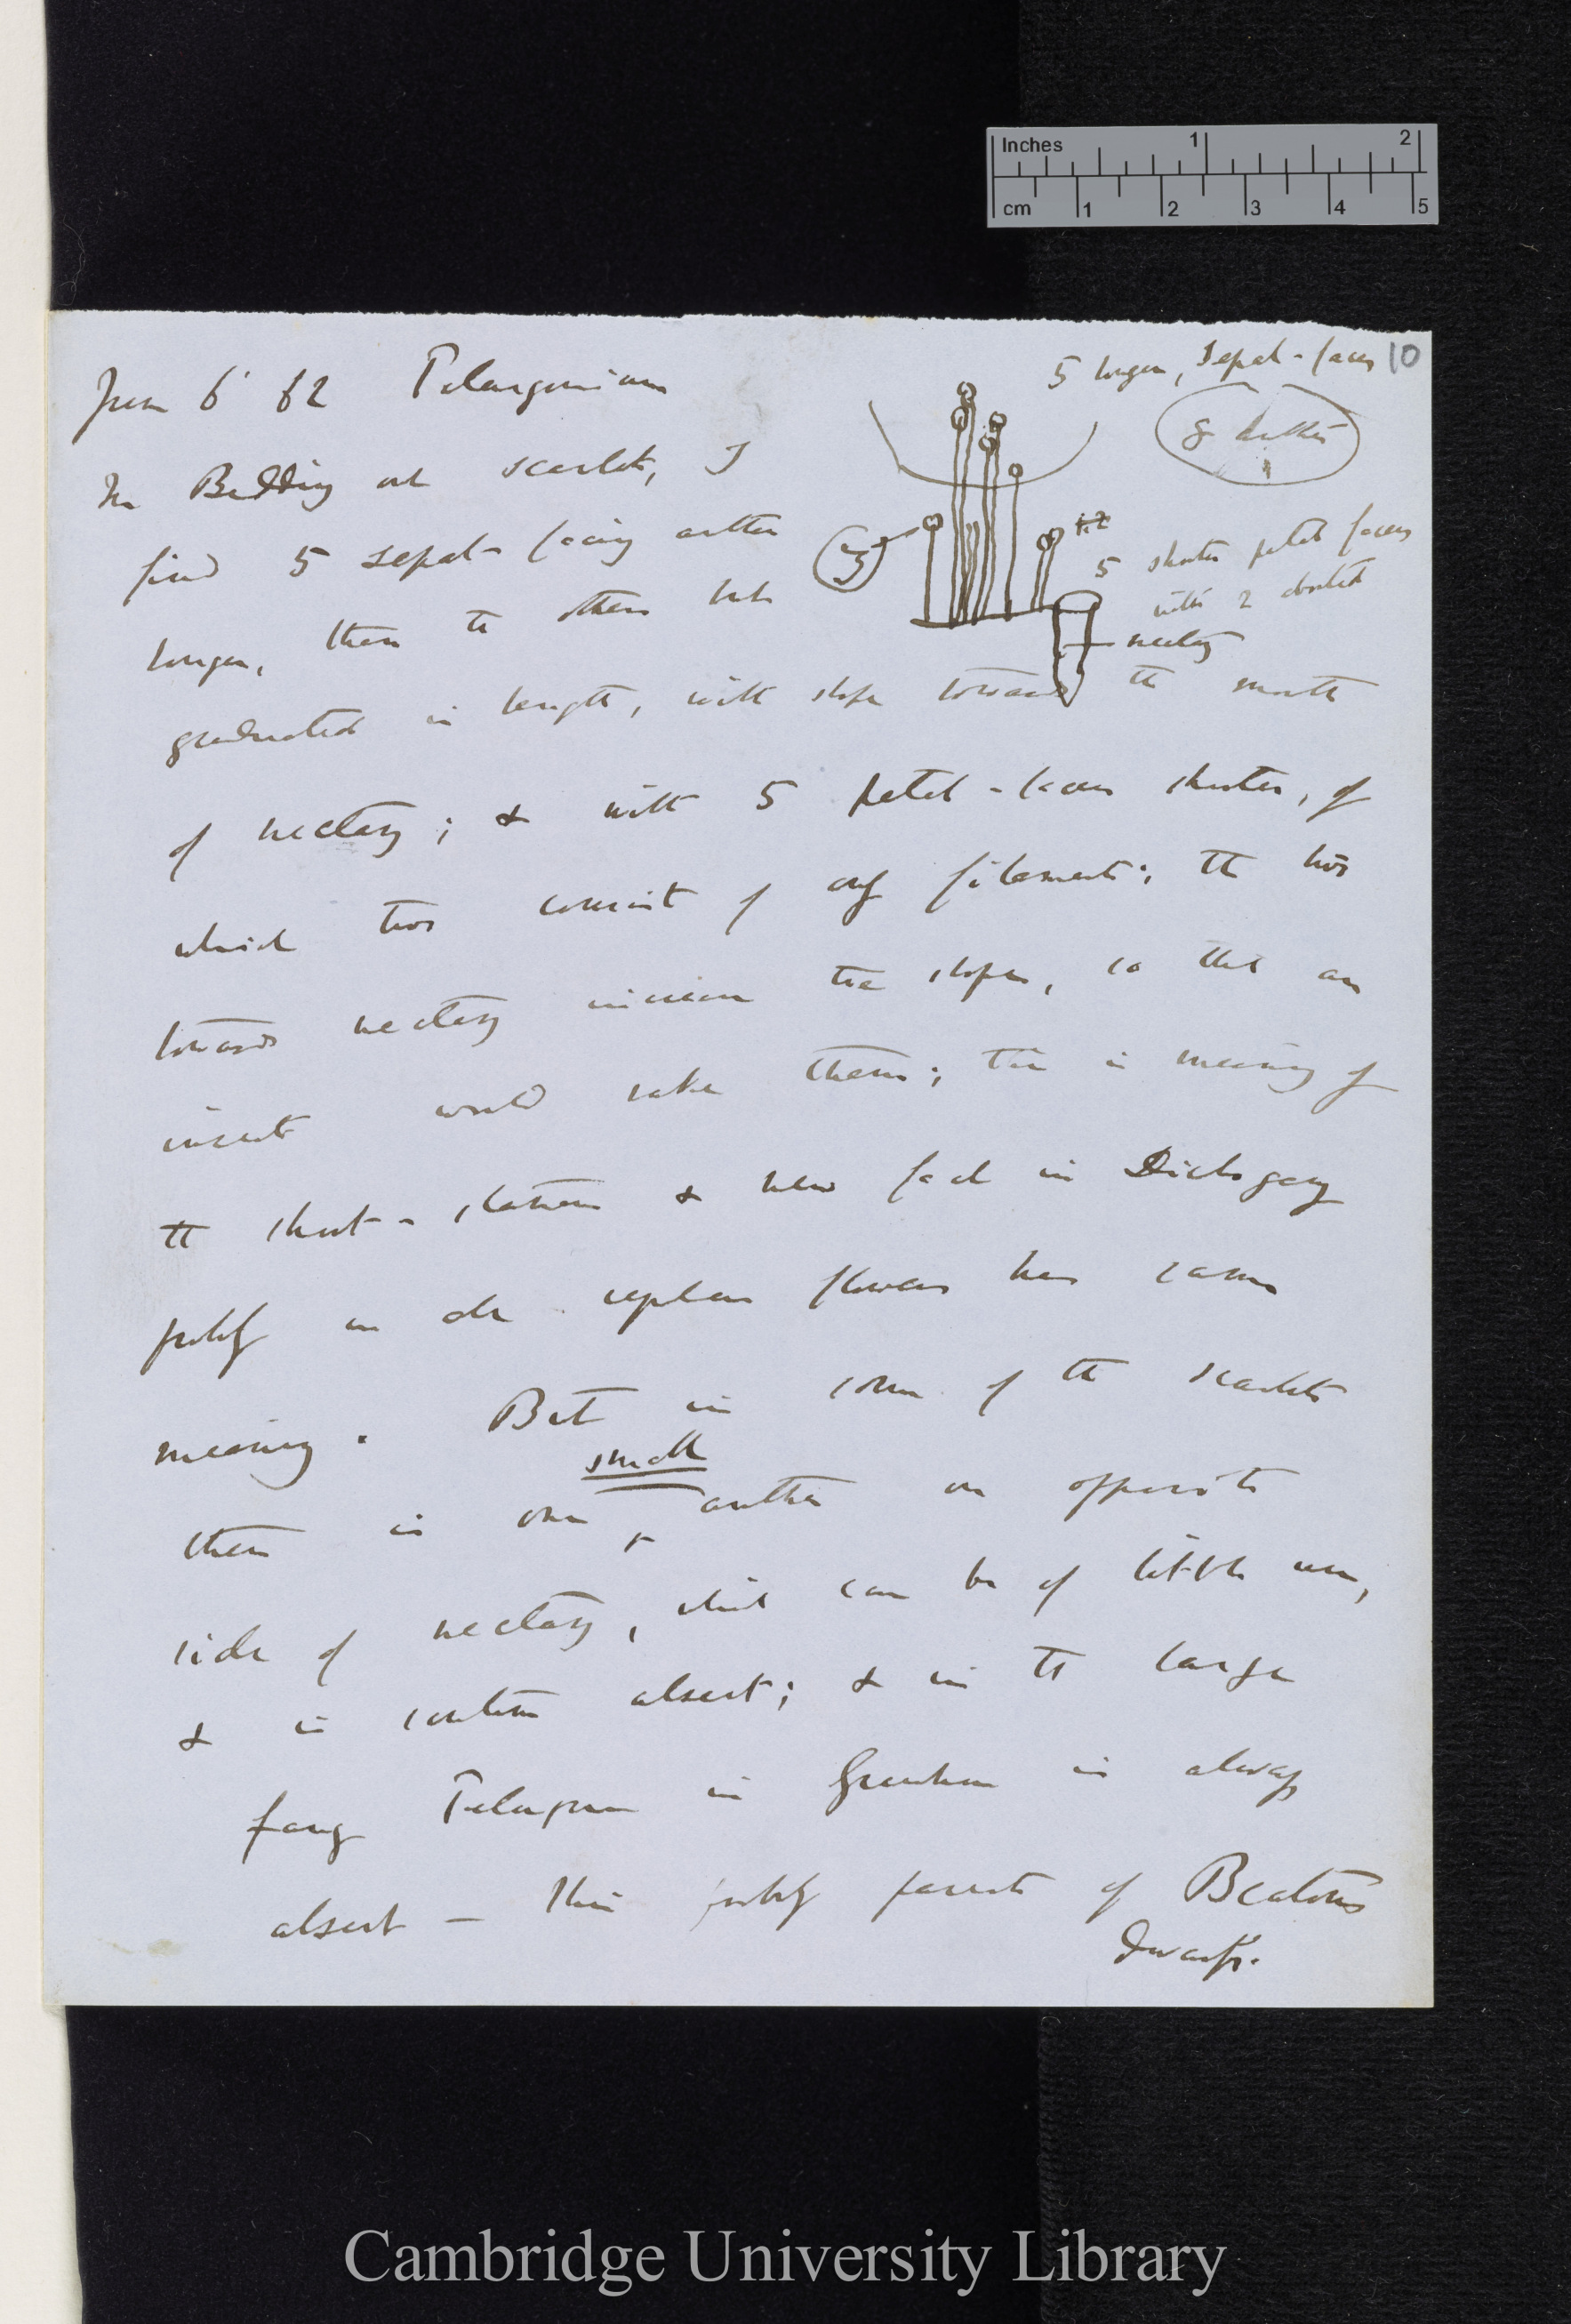 Inches 1 2
cm 1 2 3 4 5
10
June 6' 62 Pelargonium
5 longer, Sepal-faces
8 anthers
In Bedding out scarlets, I
find 5 sepal-facing anthers
longer, than the others but
5 shorter petal faces
with 2 aborted
nectary
graduated in length, with slope towards the mouth
of nectary; & with 5 petal-faces shorter, of
which two consist of only filaments; the two
towards nectary increase the slope, so that an
insect would rake them; this is meaning of
the short-stamens & new fact in Dichogamy
probly in all regular flowers has same
meaning. But in some of the scarlets
there is one small anther on opposite
side of nectary, which can be of little use,
& is sometimes absent; & in the large
fancy Pelargonium in Greenhouse is always
absent — this probly parent of Beatons
Dwarfs.
Cambridge University Library